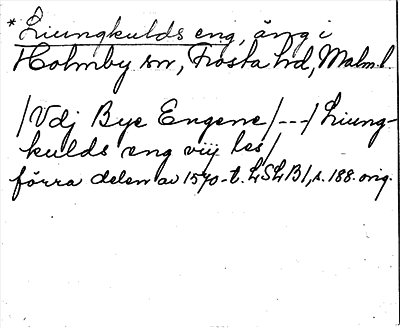 *Liungkulds eng, äng i
Holmby sn, Frosta hd, Malm.l.
/Vdj Bye Engene/---/Liung-
kulds eng viij les/
förra delen av 1570-t. LSLB1, s. 188. orig.